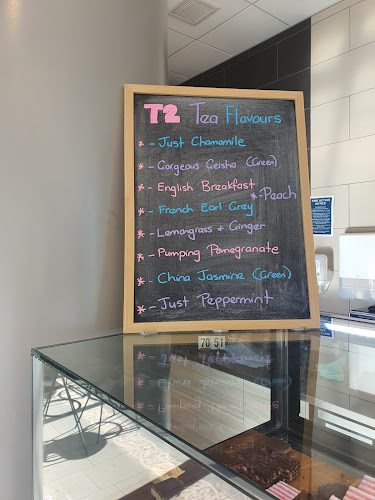 T2 Tea Flavours
* - Just Chamomile
* - Gorgeous Geisha (Green)
* - English Breakfast
* - Peach
* - French Earl Grey
* - Lemongrass + Ginger
* - Pumping Pomegranate
* - China Jasmine (Green)
* - Just Peppermint
70 51